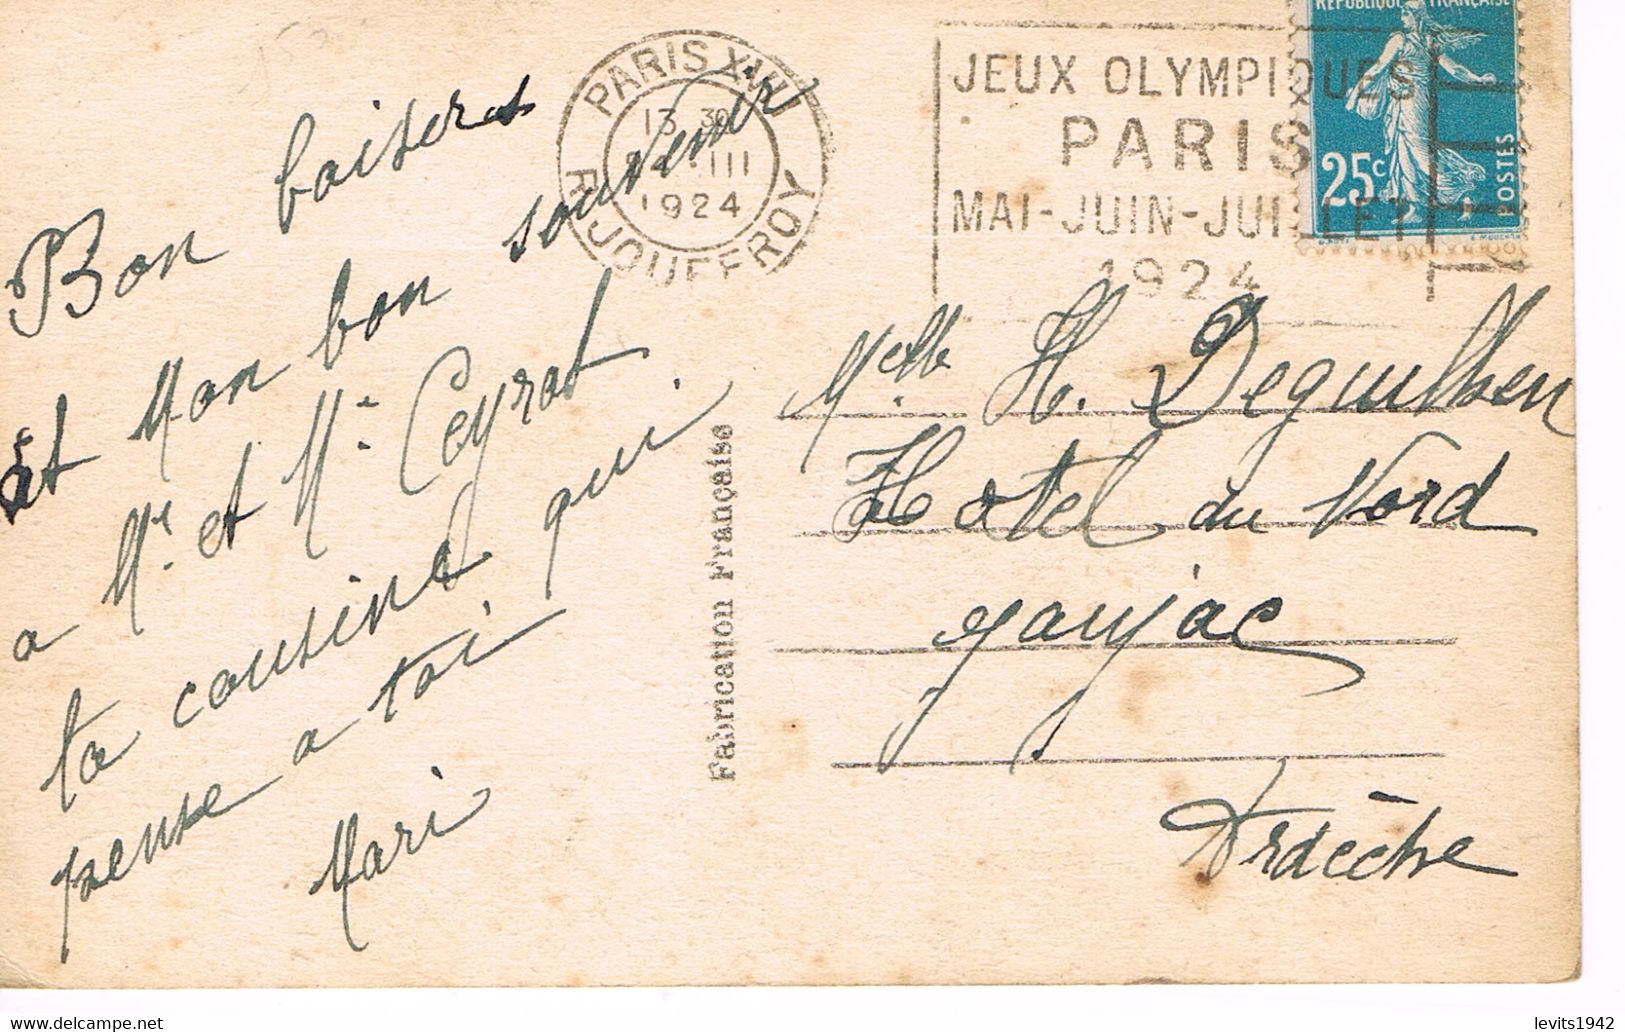 Bon baisers
Et Mon bon souvenir
a Mr et Me Ceyrat
ta cousine qui
pense a toi
Mari
PARIS XVII
13 30
III
1924
R. JOUFFROY
JEUX OLYMPIQUES
PARIS
MAI-JUIN-JUILLET
1924
REPUBLIQUE FRANÇAISE
25c
POSTES
Fabrication Française
Melle H. Deguilhen
Hotel du Nord
Jaujac
Ardèche
levits1942